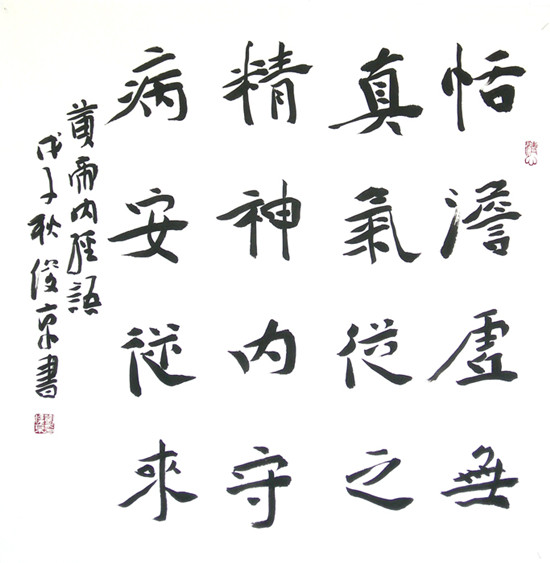 恬澹虛無
真氣從之
精神內守
病安從來
黄帝内經語
戊子秋俊京書